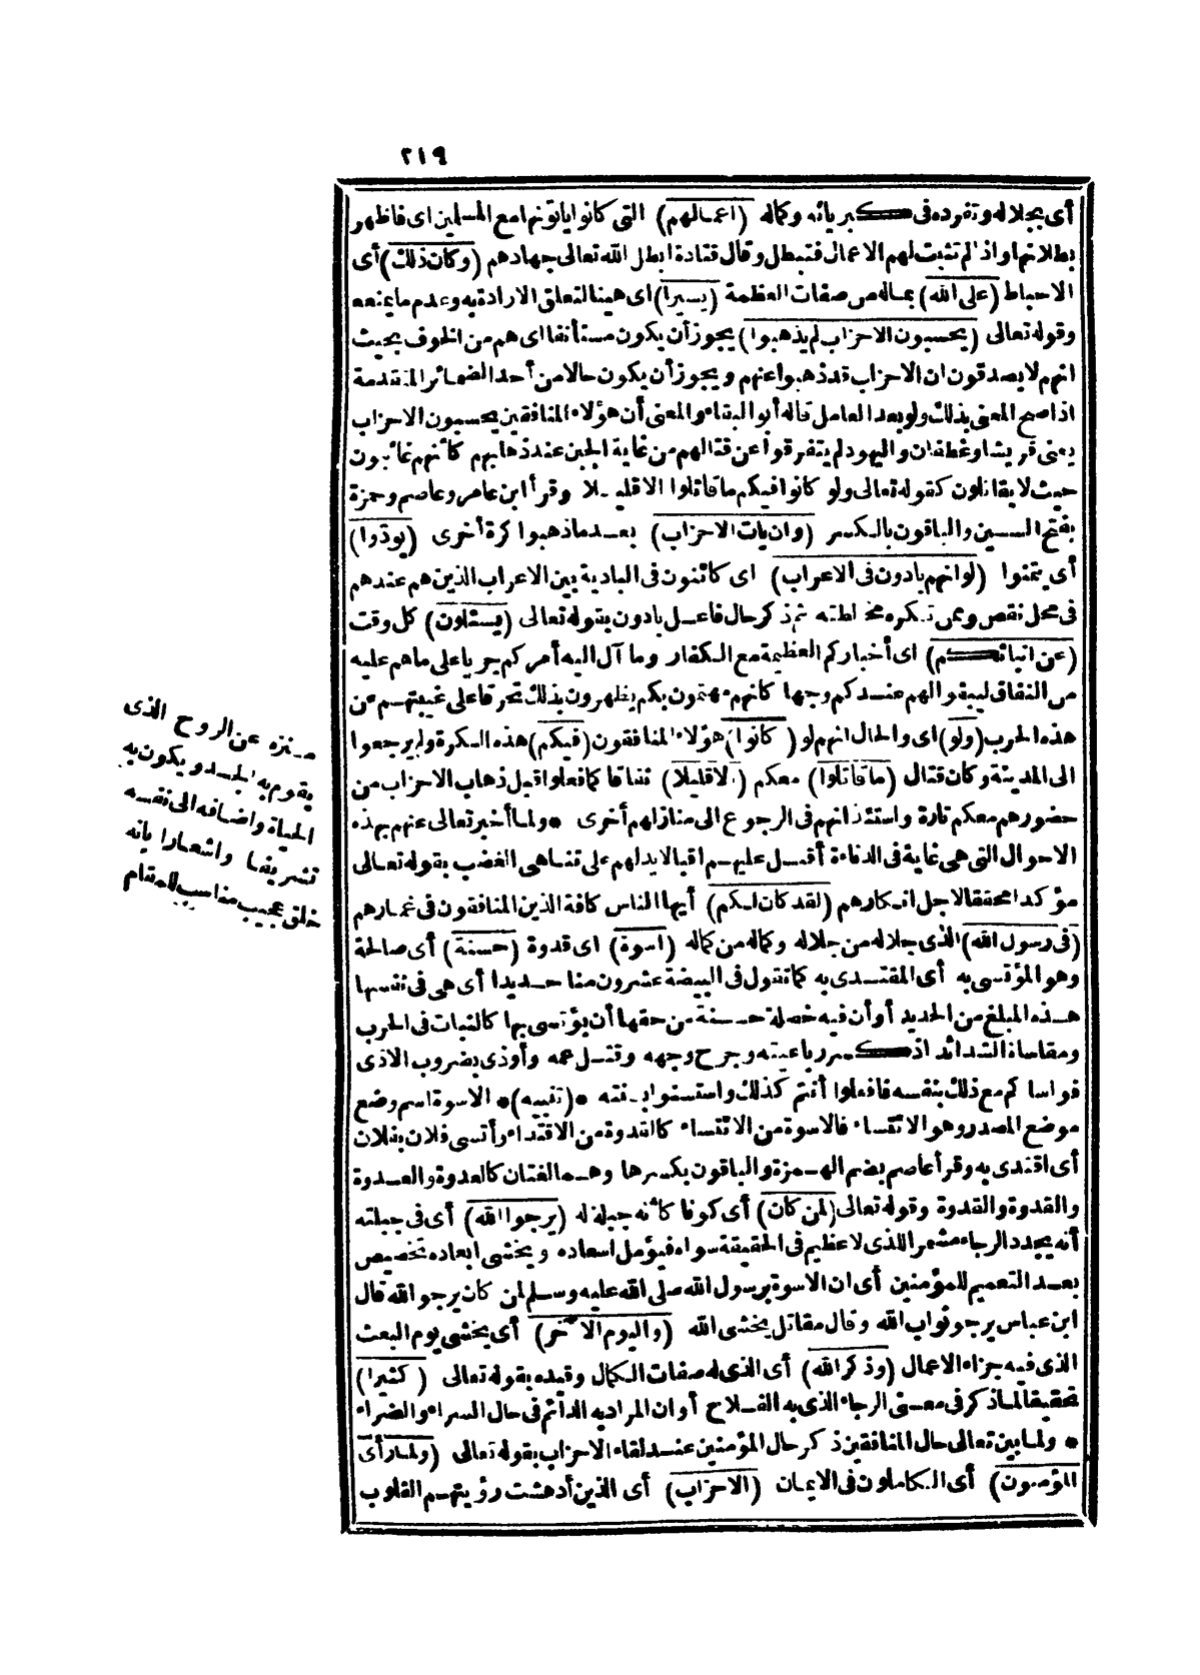 ٢١٩
أى بجلاله وتفرده فى كبريائه وكماله (اعمالهم) التى كانوا يأتونها مع المسلمين اى فاظهر
بطلانها واذ لم تثبت لهم الاعمال فتبطل وقال قتادة ابطل الله تعالى جهادهم (وكان ذلك) أى
الاحباط (على الله) بماله من صفات العظمة (يسيرا) اى هينا لتعلق الارادة به وعدم ما يمنعه
وقوله تعالى (يحسبون الاحزاب لم يذهبوا) يجوز أن يكون مستأنفا اى هم من الخوف بحيث
انهم لا يصدقون ان الاحزاب قد ذهبوا عنهم ويجوز أن يكون حالا من أحد الضمائر المتقدمة
اذا صح المعنى بذلك ولو بعد العامل قاله أبو البقاء والمعنى أن هؤلاء المنافقين يحسبون الاحزاب
يعنى قريشا وغطفان واليهود لم يتفرقوا عن قتالهم من غاية الجبن عند ذهابهم كأنهم غائبون
حيث لا يقاتلون كقوله تعالى ولو كانوا فيكم ما قاتلوا الا قليلا وقرأ ابن عامر وعاصم وحمزة
بفتح السين والباقون بالكسر (وان يات الاحزاب) بعد ما ذهبوا كرة أخرى (يودّوا)
أى يتمنوا (لو انهم بادون فى الاعراب) اى كائنون فى البادية بين الاعراب الذين هم عندهم
فى محل نقص وممن تكره مخالطته ثم ذكر حال فاعل بادون بقوله تعالى (يسئلون) كل وقت
(عن انبائكم) اى أخباركم العظيمة مع الكفار وما آل اليه أمركم جريا على ما هم عليه
من النفاق ليبقوا لهم عندكم وجها كأنهم مهتمون بكم يظهرون بذلك تحرقا على غيبتهم عن
هذه الحرب (ولو) اى والحال انهم لو (كانوا) هؤلاء المنافقون (فيكم) هذه الكرة ولم يرجعوا
الى المدينة وكان قتال (ما قاتلوا) معكم (الا قليلا) نفاقا كما فعلوا قبل ذهاب الاحزاب من
حضورهم معكم تارة واستئذانهم فى الرجوع الى منازلهم أخرى * ولما أخبر تعالى عنهم بهذه
الاحوال التى هى غاية فى الدناءة أقبل عليهم اقبالا يدلهم على تناهى الغضب بقوله تعالى
مؤكدا محققا لاجل انكارهم (لقد كان لكم) أيها الناس كافة الذين المنافقون فى غمارهم
(فى رسول الله) الذى جلاله من جلاله وكماله من كماله (اسوة) اى قدوة (حسنة) أى صالحة
وهو المؤتسى به أى المقتدى به كما تقول فى البيضة عشرون منا حديدا أى هى فى نفسها
هذه المبلغ من الحديد أو أن فيه خصلة حسنة من حقها أن يؤتسى بها كالثبات فى الحرب
ومقاساة الشدائد اذ كسر رباعيته وجرح وجهه وقتل عمه وأوذى بضروب الاذى
فواساكم مع ذلك بنفسه فافعلوا أنتم كذلك واستسنوا بسنته * (تنبيه) * الاسوة اسم وضع
موضع المصدر وهو الائتساء فالاسوة من الائتساء كالقدوة من الاقتداء وأتسى فلان بفلان
أى اقتدى به وقرأ عاصم بضم الهمزة والباقون بكسرها وهما لغتان كالعدوة والعدوة
والقدوة والقدوة وقوله تعالى (لمن كان) أى كونا كأنه جبلة له (يرجوا الله) أى فى جبلته
أنه يجدد الرجاء مستمرا للذى لا عظيم فى الحقيقة سواه فيؤمل اسعاده ويخشى ابعاده تخصيص
بعد التعميم للمؤمنين أى ان الاسوة برسول الله صلى الله عليه وسلم لمن كان يرجو الله قال
ابن عباس يرجو ثواب الله وقال مقاتل يخشى الله (واليوم الآخر) أى يخشى يوم البعث
الذى فيه جزاء الاعمال (وذكر الله) أى الذى له صفات الكمال وقيده بقوله تعالى (كثيرا)
تحقيقا لما ذكر فى معنى الرجاء الذى به الفلاح أو ان المراد به الدائم فى حال السراء والضراء
* ولما بين تعالى حال المنافقين ذكر حال المؤمنين عند لقاء الاحزاب بقوله تعالى (ولما رأى
المؤمنون) أى الكاملون فى الايمان (الاحزاب) أى الذين أدهشت رؤيتهم القلوب
منزه عن الروح الذى
يقوم به الجسد ويكون به
الحياة واضافه الى نفسه
تشريفا واشعارا بأنه
خلق عجيب مناسب للمقام